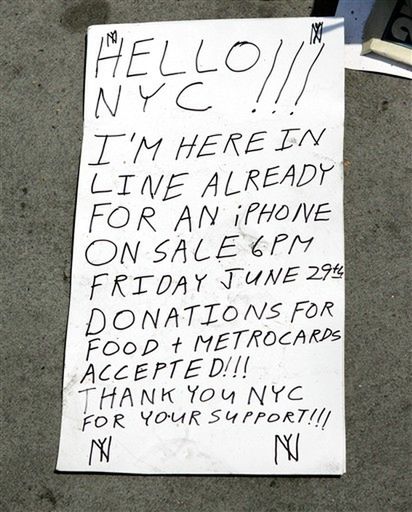 NY NY
HELLO!!!
NYC !!!
I'M HERE IN
LINE ALREADY
FOR AN iPHONE
ON SALE 6PM
FRIDAY JUNE 29th
DONATIONS FOR
FOOD + METROCARDS
ACCEPTED!!!
THANK YOU NYC
FOR YOUR SUPPORT!!!
NY NY